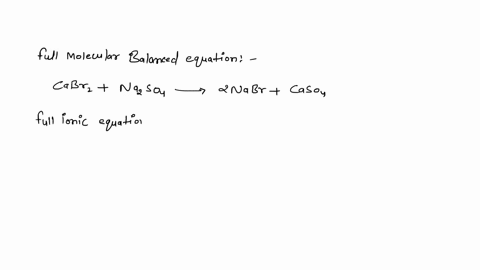 full Molecular Balanced equation:-
CaBr2 + Na2SO4 → 2NaBr + CaSO4
full ionic equation